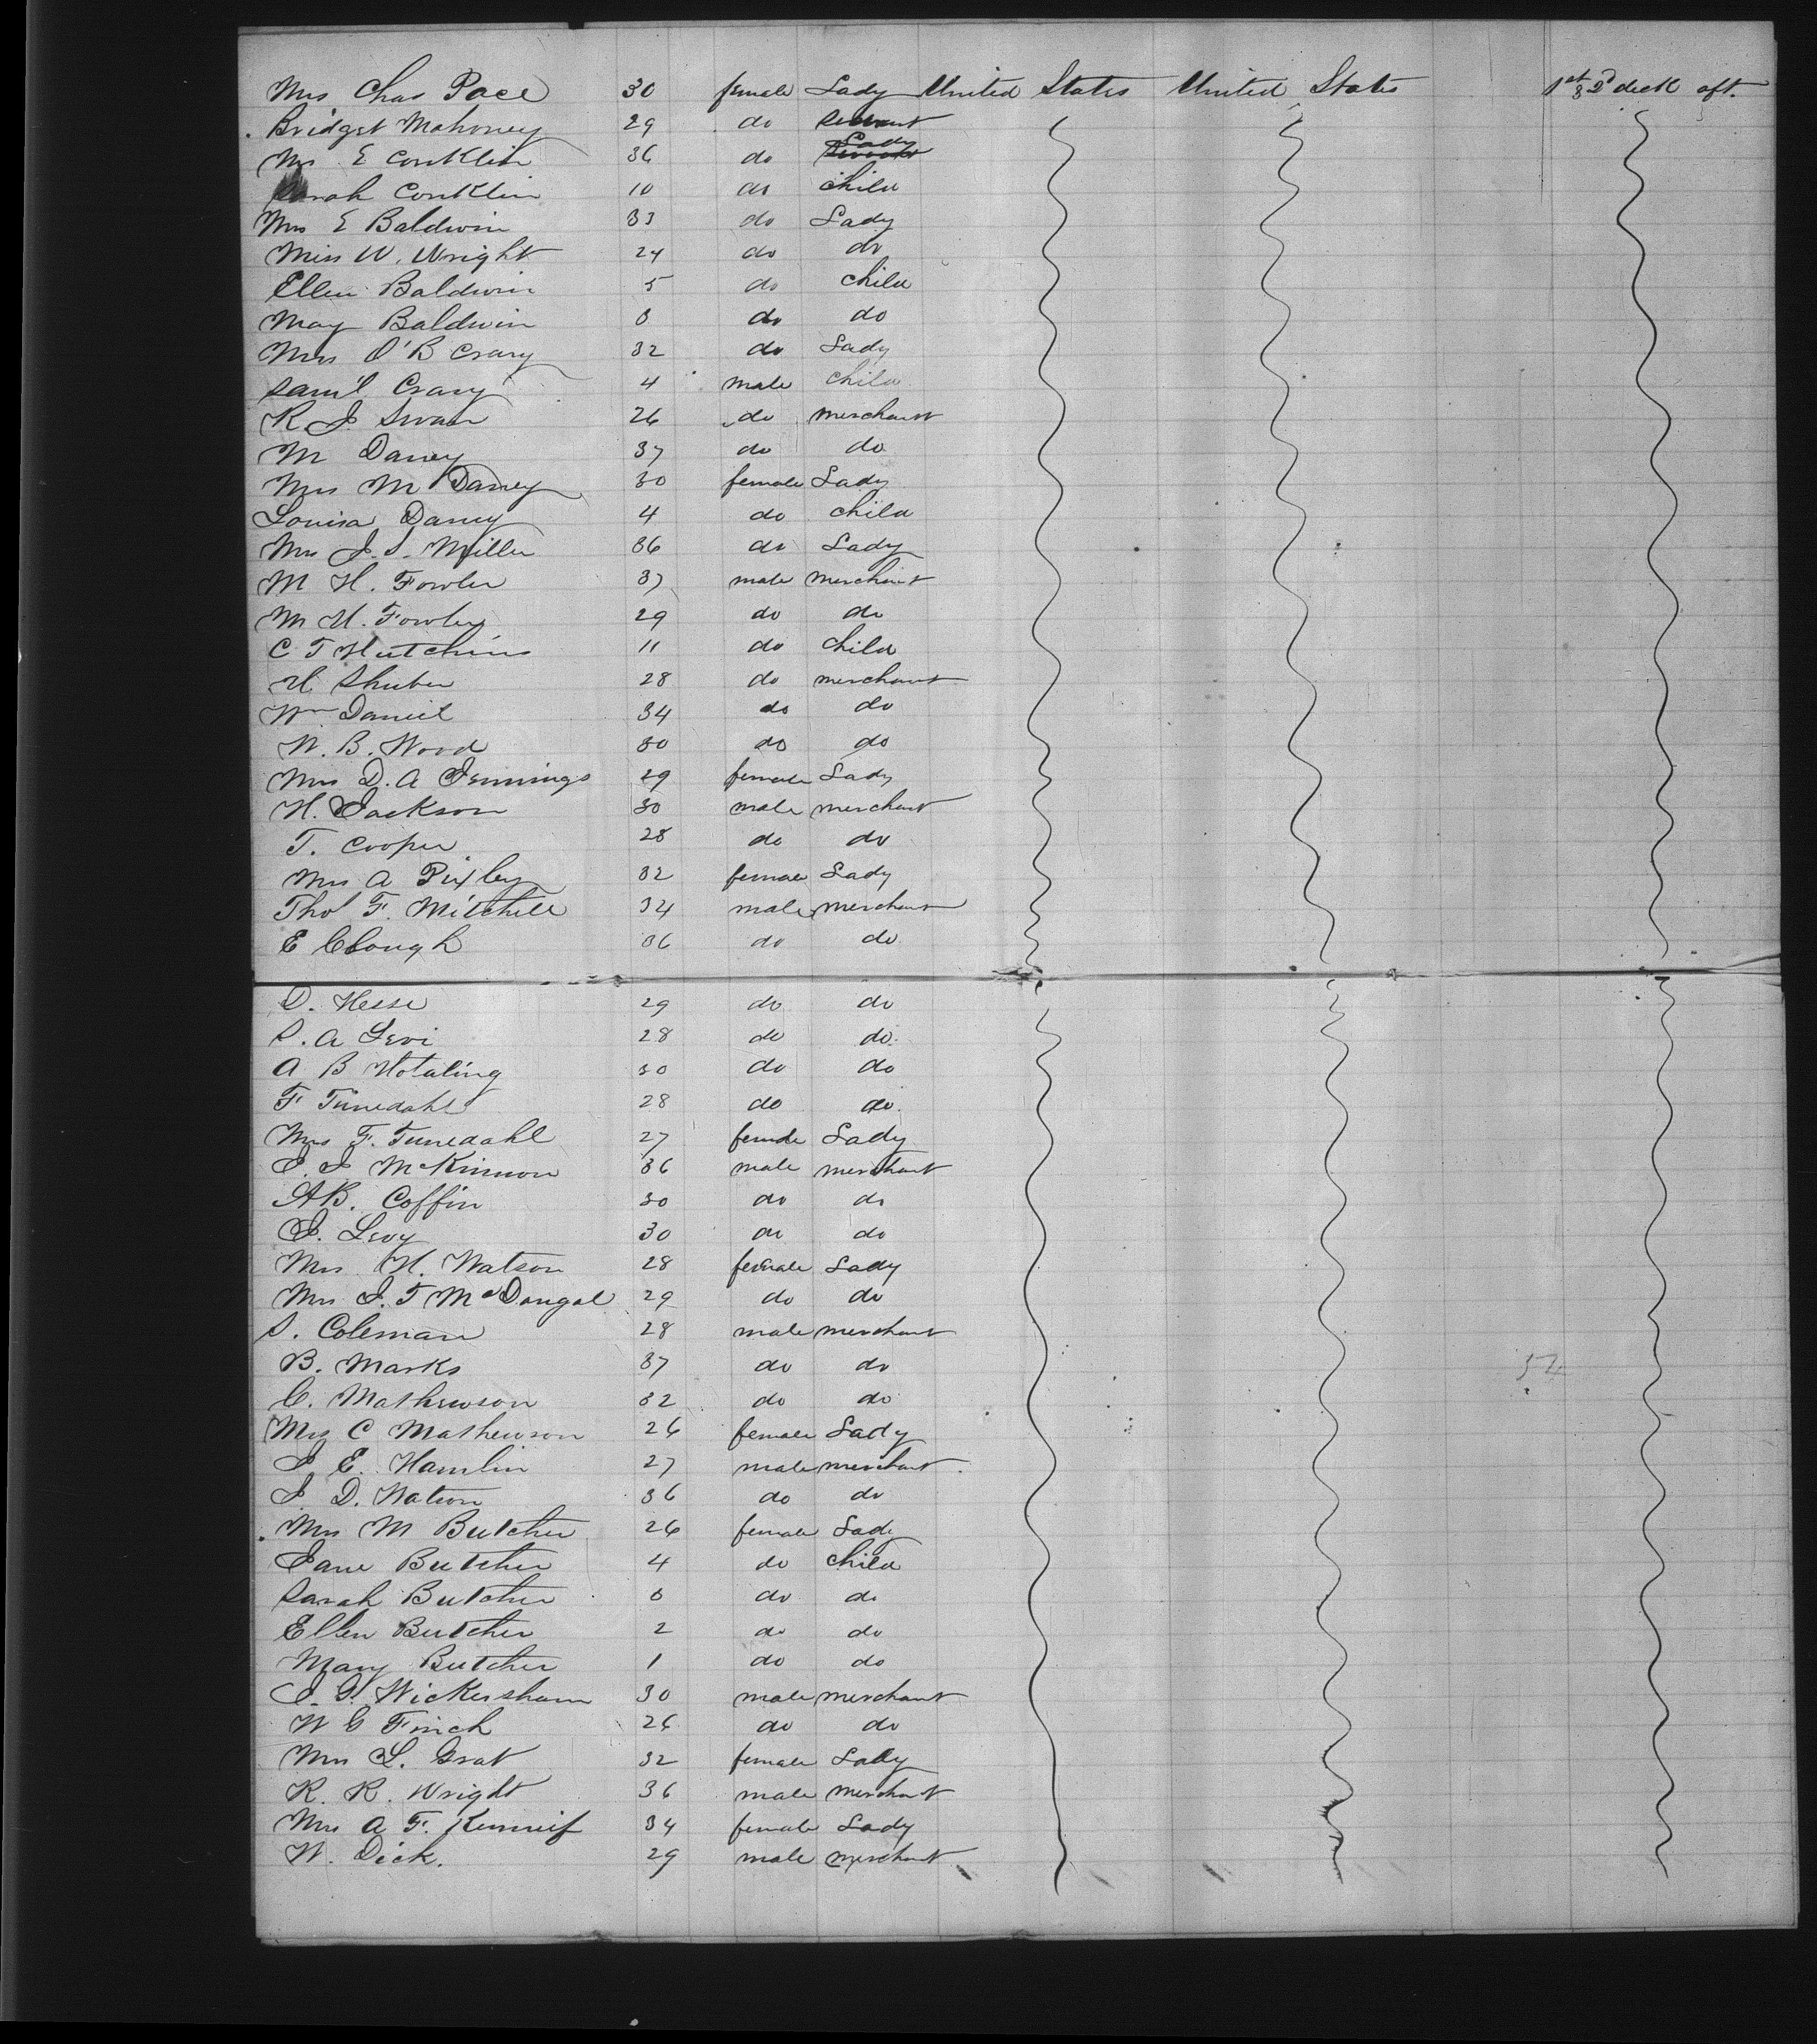 Mrs Chas Pace 30 female Lady United States United States 1st & 2d deck aft.
Bridget Mahoney 29 do servant
Mrs E Conklin 36 do Lady
Sarah Conklin 10 do child
Mrs E Baldwin 33 do Lady
Miss W. Wright 24 do do
Ellen Baldwin 5 do child
May Baldwin 3 do do
Mrs O'B Crary 32 do Lady
Sam'l Crary 4 male child
R J. Swan 26 do merchant
M Daney 37 do do
Mrs M Daney 30 female Lady
Louisa Daney 4 do child
Mrs J. S. Miller 36 do Lady
M H. Fowler 37 male merchant
M H. Fowler 29 do do
C T Hutchins 11 do child
H. Shuber 28 do merchant
Wm Daniel 34 do do
W. B. Wood 30 do do
Mrs D. A Jennings 29 female Lady
H. Jackson 30 male merchant
T. Cooper 28 do do
Mrs A Pixley 32 female Lady
Thos F. Mitchell 34 male merchant
E Clough 36 do do
D. Hesse 29 do do
S. A Levi 28 do do
A B Hotaling 30 do do
F Tunedahl 28 do do
Mrs F. Tunedahl 27 female Lady
J. J McKinnon 36 male merchant
A B. Coffin 30 do do
J. Levy 30 do do
Mrs H. Watson 28 female Lady
Mrs J. T McDougal 29 do do
S. Coleman 28 male merchant
B. Marks 37 do do
C. Mathewson 32 do do 52
Mrs C Mathewson 26 female Lady
J E. Hamlin 27 male merchant
J. D. Watson 36 do do
Mrs M Butcher 26 female Lady
Jane Butcher 4 do child
Sarah Butcher 3 do do
Ellen Butcher 2 do do
Mary Butcher 1 do do
J. G. Wickersham 30 male merchant
W G Finch 26 do do
Mrs L. Grat 32 female Lady
R. R. Wright 36 male merchant
Mrs A F. 34 female Lady
W. Dick. 29 male merchant